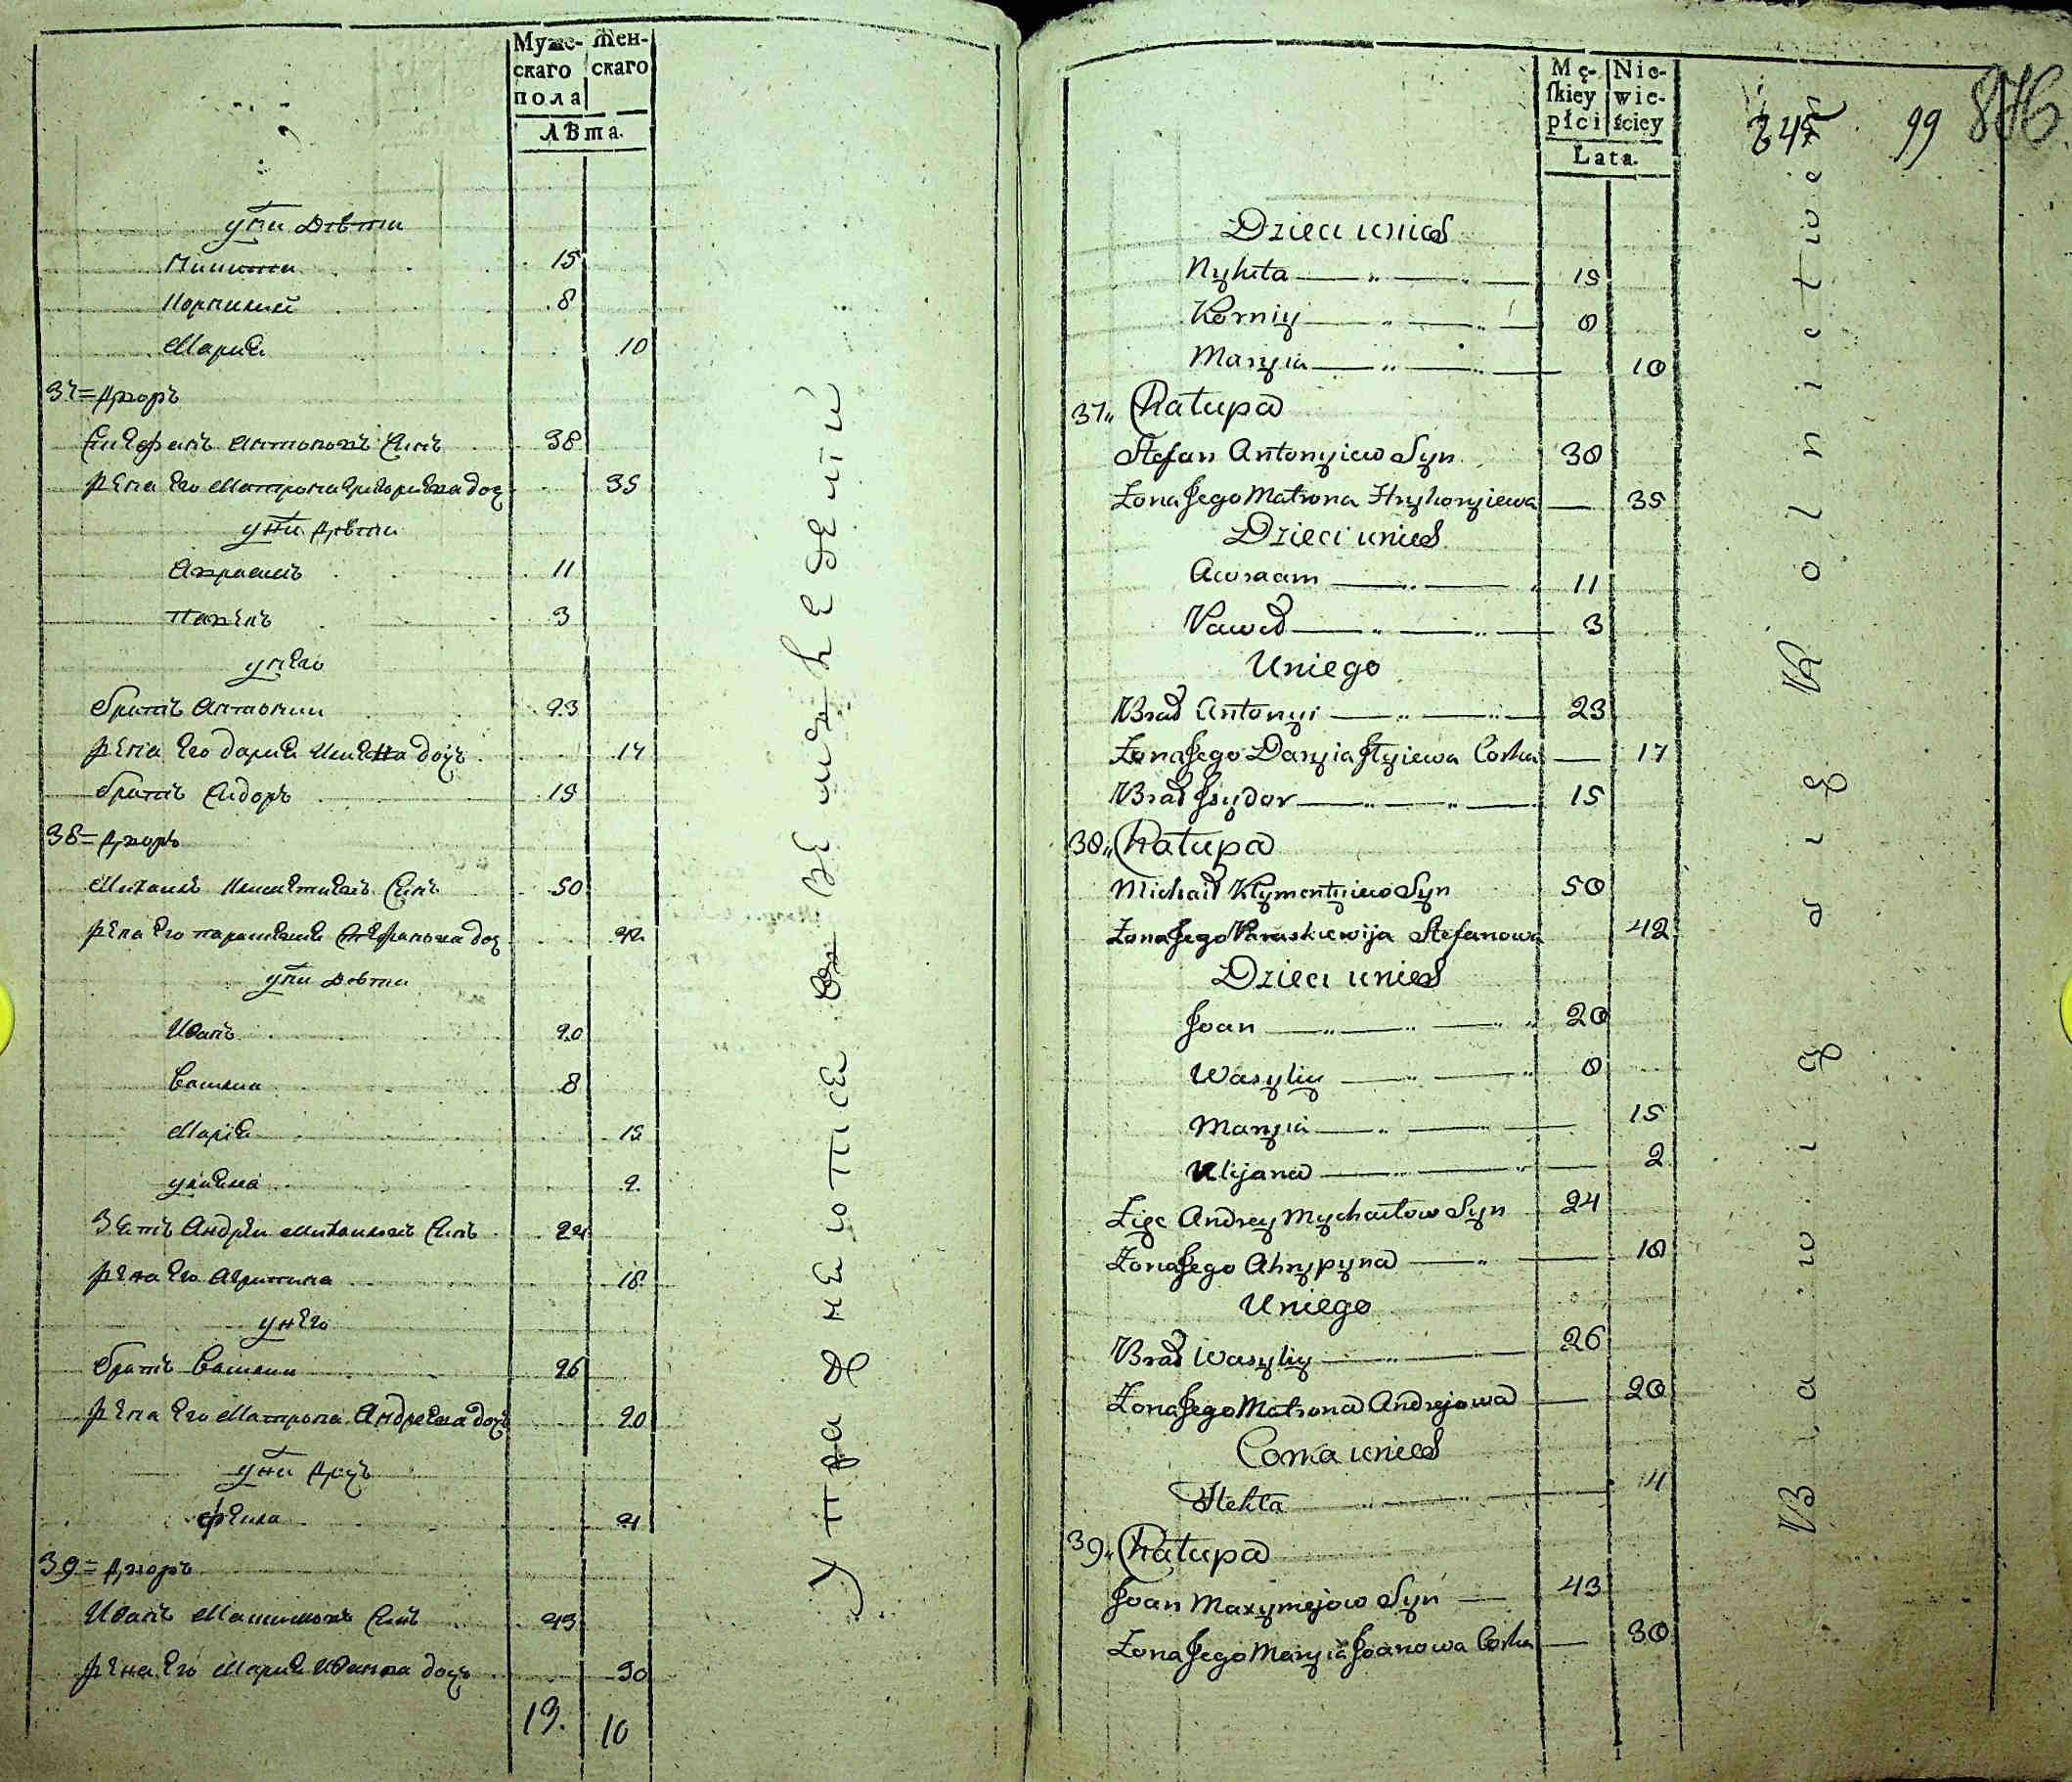 Муже- Жен-
скаго скаго
пола
Лѣта.
у ни дѣти
Никита 15
Корнилий 8
Мария 10
37 = Дворъ
Стефанъ Антоновъ Синъ 38
Жена Его Матрона Григориева доч 35
у ни дѣти
Авраамъ 11
Павелъ 3
у него
братъ Антоний 23
Жена Его Дария Илиева дочь 17
братъ Сидоръ 15
38 = Дворъ
Михаилъ Климентиевъ Синъ 50
Жена Его Параскевия Стефанова доч 42
у ни дѣти
Иванъ 20
Василий 8
Мария 15
Улияна 2
Зять Андрей Михайловъ Синъ 24
Жена Его Агрипина 18
у него
братъ Василий 26
Жена Его Матрона Андреева дочь 20
у ни дочь
Фекла 4
39 = Дворъ
Иванъ Максимовъ Синъ 43
Жена Его Мария Иванова дочь 30
13. 10
Mę- Nie-
ſkiey wie-
płci ściey
Lata.
245 99 876
Dzieci unich
Nykita 15
Korniy 8
Maryia 10
37„ Chałupa
Stefan Antonyiew Syn 38
Zona Jego Matrona Hryhoryiewa 35
Dzieci unich
Awraam 11
Paweł 3
Uniego
Brad Antonyi 23
Zona Jego Daryia Jlyiewa Corka 17
Brad Jsydor 15
38„ Chałupa
Michaił Klymentyiew Syn 50
Zona Jego Paraskiewija Stefanowa 42
Dzieci unich
Joan 20
Wasyliy 8
Maryia 15
Ulijana 2
Zięc Andrey Mychaiłow Syn 24
Zona Jego Ahrypyna 18
Uniego
Brad Wasyliy 26
Zona Jego Matrona Andrejowa 20
Corka unich
Tekla 4
39„ Chałupa
Joan Maxymejow Syn 43
Zona Jego Maryia Joanowa Corka 30